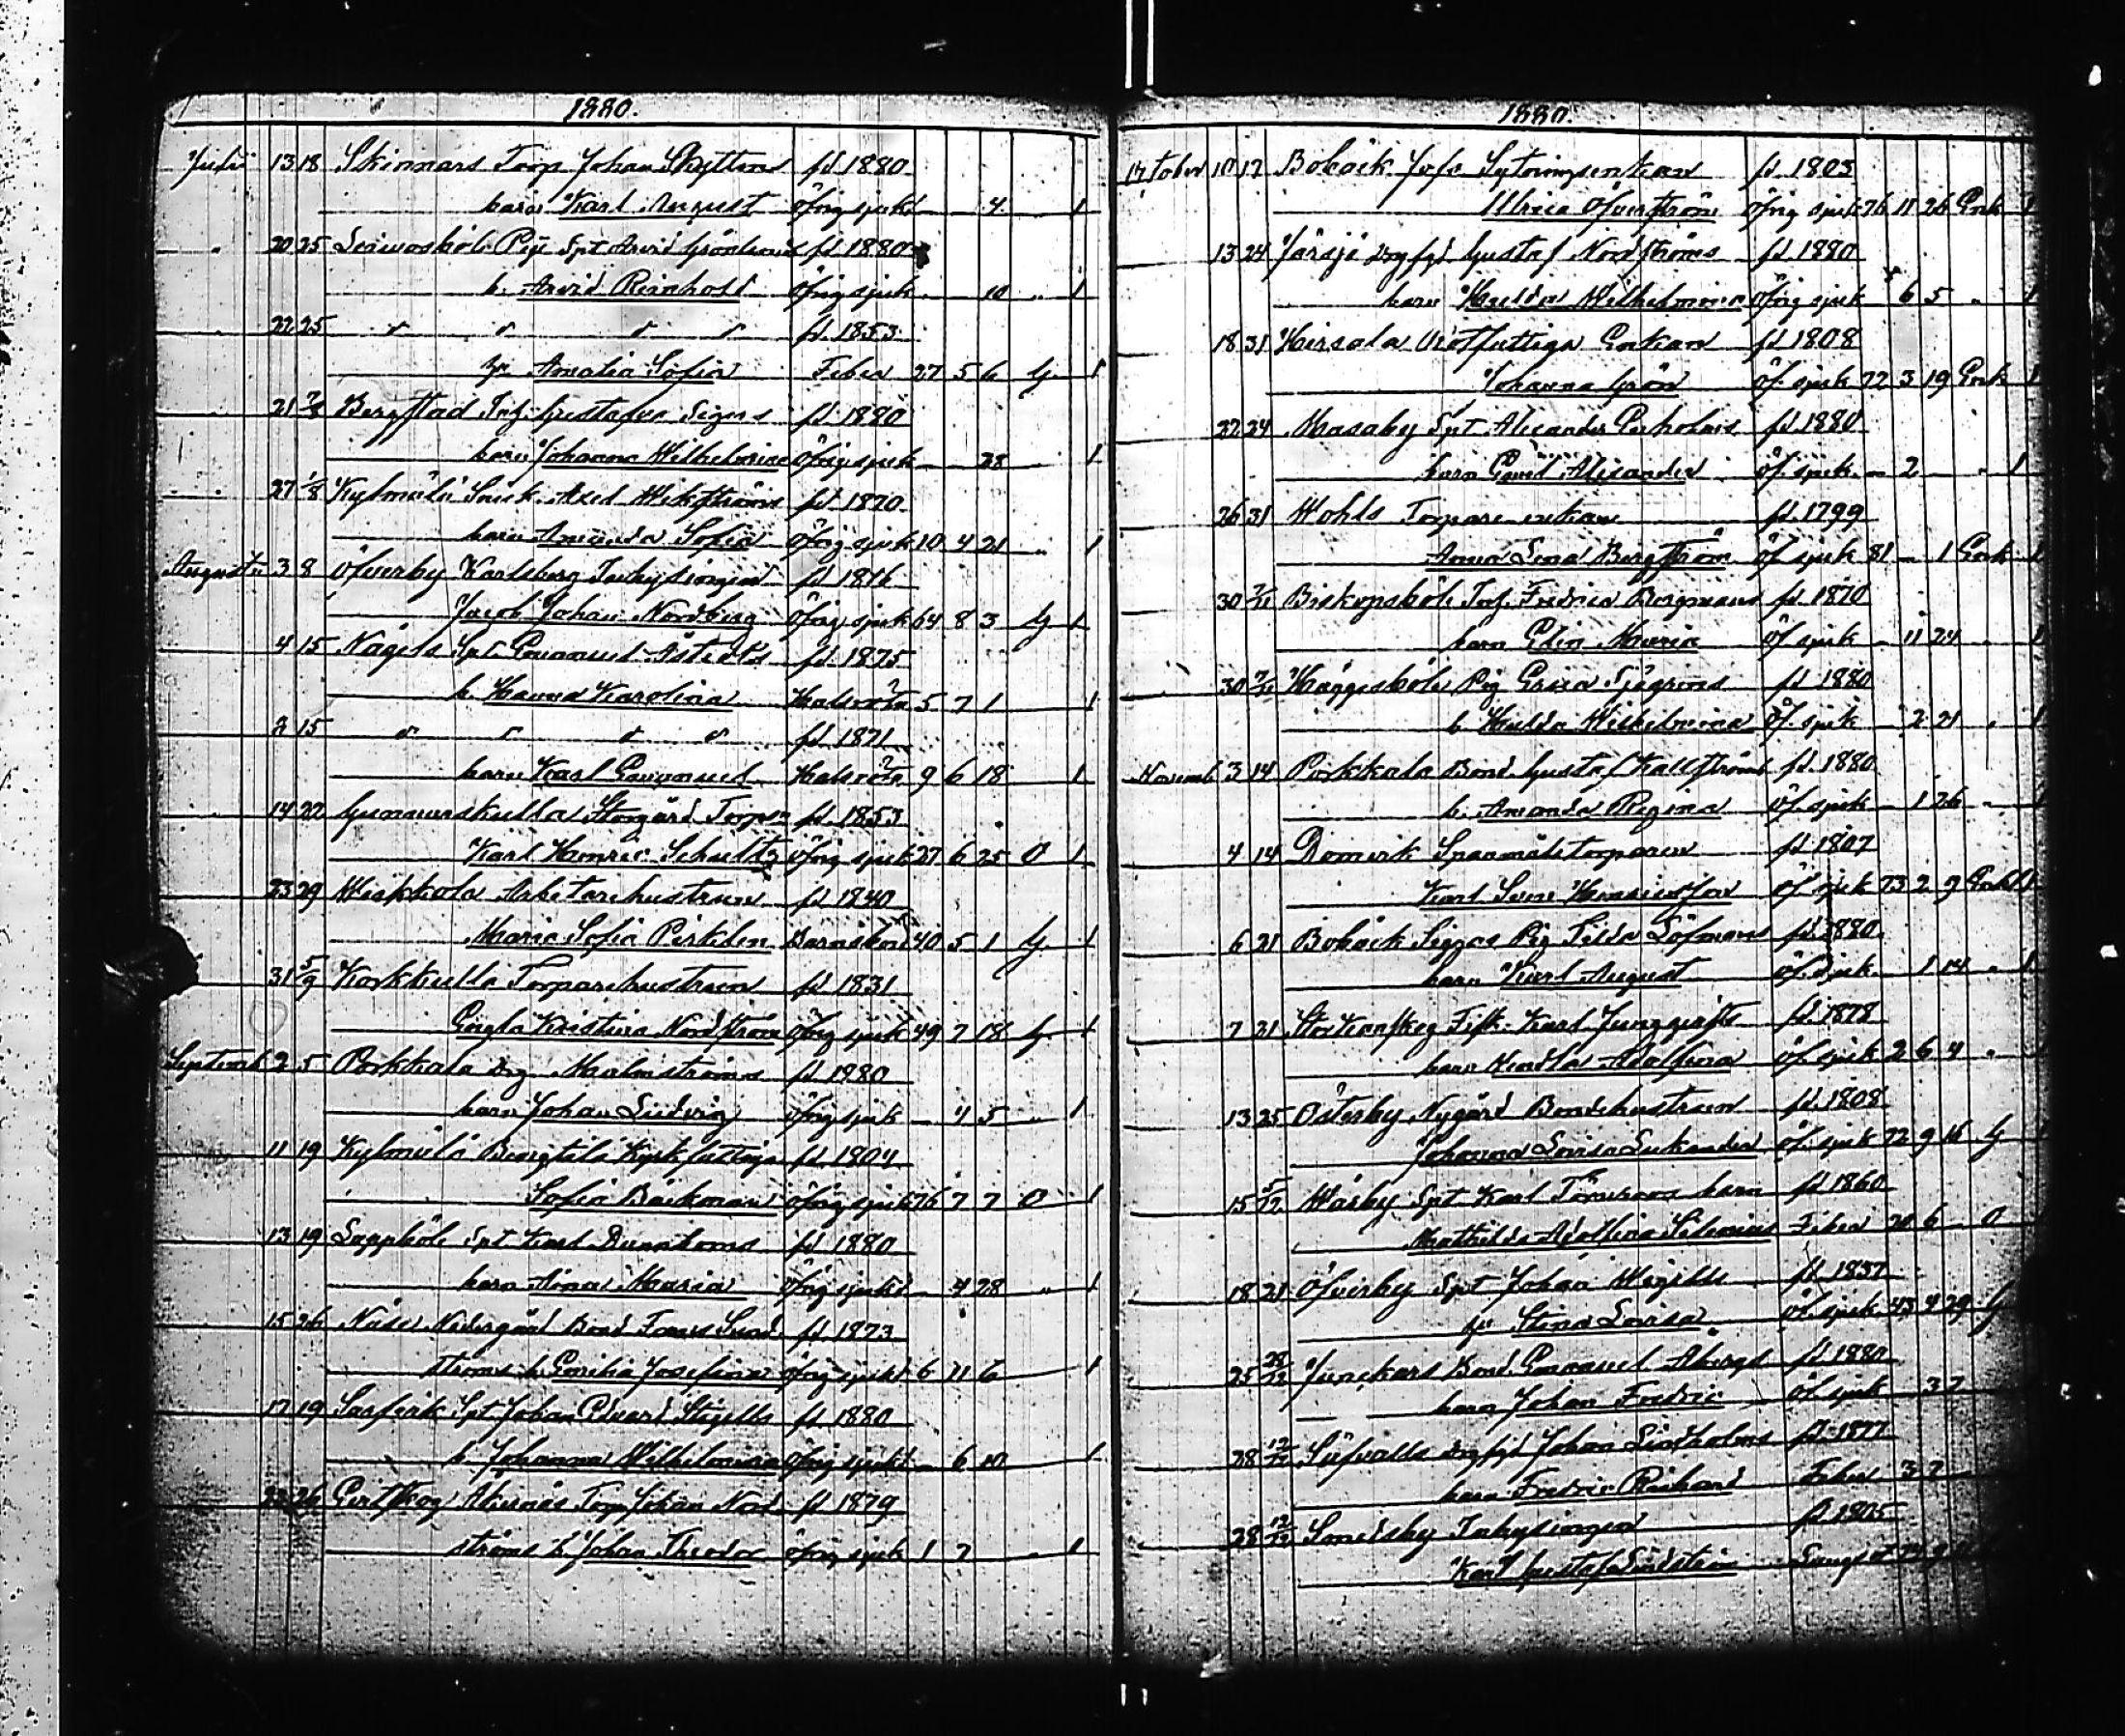 1880.
Julii 13 18 Skinnars Torp. Johan Skyttens fd 1880
barn Karl August öfrig sjukd — 4 1
" 20 25 Pig Spt Arvid Grönlunds fd 1880
b. Arvid Reinhold öfrig sjuk. — 10 " 1
" 22 25 " " " " fd. 1853
hu Amalia Sofia Feber 27 5 6 G. 1
" 21 7/8 Bergstad Inh. Gustafva Sigers fd. 1880
barn Johanna Wilhelmina öfrig sjuk — 28 1
" 27 1/8 Kylmälä Snick. Axel Wikströms fd 1870
barn Amanda Sofia öfrig sjuk 10 4 21 " 1
Augusti 3 8 Öfverby Karlsberg Inhysingen fd 1816
Jacob Johan Nordberg öfrig sjuk 64 8 3 G 1
4 15 Nägels Spt Emanuel Åstedts fd. 1875
b. Hanna Karolina Halsröta 5 7 1 1
2 15 " " " " fd. 1871
barn Karl Emanuel Halsröta 9 6 18 1
" 14 22 Gunnarskulla Storgård Torp fd. 1853
Karl Henric Schultz öfrig sjuk 27 6 25 O 1
23 29 Weikkola Arbetarehustrun fd 1840
Maria Sofia Pirkelen Barnsbörd 40 5 1 G 1
31 5/9 Korkkulla Torparehustrun fd 1831
Engla Kristina Nordström öfrig sjuk 49 7 18 G 1
Septemb 2 5 Porkkala Drg Malmströms fd. 1880
barn Johan Ludvig öfrig sjuk — 4 5 " 1
11 19 Kylmälä Bergtila Kyrkfattiga fd. 1804
Sofia Bäckman öfrig sjuk 76 7 7 O 1
13 19 Lappböle Spt Karl fd 1880
barn Aina Maria öfrig sjukd — 4 28 " 1
15 26 Näse Nedergård Bond Lund fd. 1873
ströms b. Emilia Josefina öfrig sjukd 6 11 6 1
17 19 Sarfvik Spt Johan Edvard Stigells fd. 1880
b. Johanna Wilhelmina öfrig sjukd — 6 10 1
22 26 Gertskog Torp Johan Nord fd 1879
ströms b Johan Theodor öfrig sjuk 1 7 " 1
1880.
October 10 17 Bobäck Jofs Sytningsenkan fd. 1803
Ulrica Öfverström öfrig sjuk 76 11 26 Enk 1
13 24 Järsjö Drgfgd Gustaf Nordströms fd. 1880
barn Hulda Wilhelmina öfrig sjuk — 6 5 " 1
18 31 Hirsala Rotfattiga Enkan fd 1808
Johanna Grön öf. sjuk 72 3 19 Enk 1
22 24 Masaby Spt. Alexander fd. 1880
barn Emil Alexander öf. sjuk. — 2 — " 1
26 31 Wohls Torpare enkan fd. 1799
Anna Lena Bergström öf sjuk 81 — 1 Enk 1
30 7/11 Biskopsböle Inh. Fredrica Bergmans fd. 1870
barn Elin Maria öf sjuk — 11 24 " 1
30 7/11 Häggesböle Pig Erica Sjögrens fd 1880
b. Hulda Wilhelmina öf. sjuk — 2 21 " 1
Novemb 3 14 Porkkala Bond. Gustaf Kallströms fd. 1880
b. Amanda Regina öf. sjuk — 1 26 " 1
4 14 Domvik fd 1807
Karl Sven öf sjuk 73 2 9 Enkl 1
6 21 Bobäck Siggas Pig Tilda Löfmans fd. 1880
barn Karl August öf. sjuk — 1 14 " 1
7 21 Fisk. Karl Ljungqvists fd. 1878
barn Hendla Adolfina öf sjuk 2 6 4 "
13 25 Österby Nygård Bondehustrun fd. 1808
Johanna Lovisa Lukander öf. sjuk 72 9 16 G
15 5/12 Wåsby Spt Karl barn fd 1860
Mathilda Adolfina Silenius Feber 20 6 — O
18 21 Öfverby Spt Johan Wigells fd. 1837
hu Stina Lovisa öf. sjuk 43 4 29 G
25 28/12 Junckars Bond. Emanuel Åbergs fd 1880
barn Johan Fredric öf sjuk — 3 7
28 12/12 Drgfgd Johan Lindholms fd. 1877
barn Fredric Richard Feber 3 7
28 12/12 Smedsby Inhysingen fd 1805
Karl Gustaf Lindström